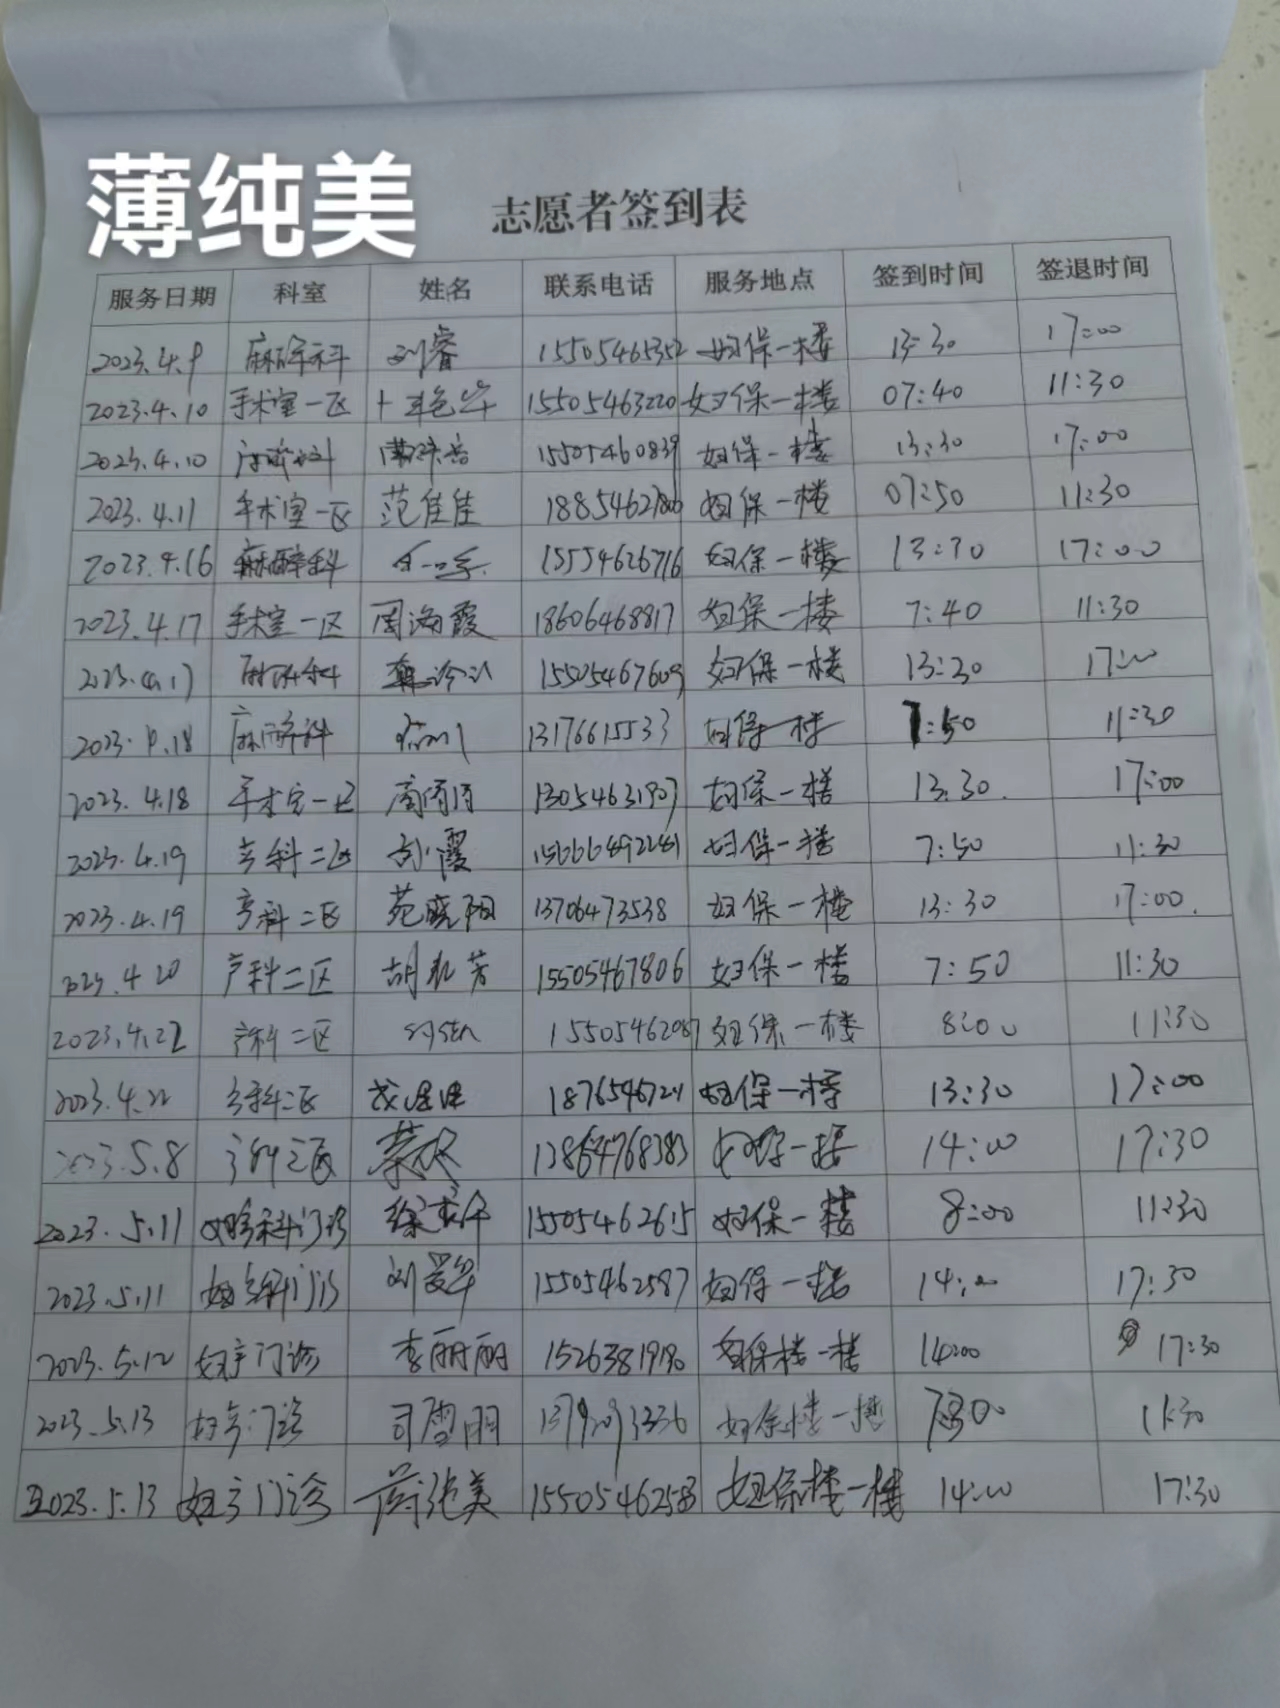 薄纯美
志愿者签到表
服务日期 科室 姓名 联系电话 服务地点 签到时间 签退时间
2023.4.9 麻醉科 刘睿 15505465352 妇保一楼 13:30 17:00
2023.4.10 手术室一区 15505463220 妇保一楼 07:40 11:30
2023.4.10 15505460839 妇保一楼 13:30 17:00
2023.4.11 手术室一区 范佳佳 妇保一楼 07:50 11:30
2023.4.16 麻醉科 15554626716 妇保一楼 13:30 17:00
2023.4.17 手术室一区 周海霞 18606468817 妇保一楼 7:40 11:30
2023.4.17 麻醉科 15505467609 妇保一楼 13:30 17:00
2023.4.18 麻醉科 13176615533 妇保一楼 7:50 11:30
2023.4.18 手术室一区 13054631907 妇保一楼 13:30 17:00
2023.4.19 产科二区 妇保一楼 7:50 11:30
2023.4.19 产科二区 苑晓阳 13706473538 妇保一楼 13:30 17:00
2023.4.20 产科二区 15505467806 妇保一楼 7:50 11:30
2023.4.22 产科二区 15505462087 妇保一楼 8:00 11:30
2023.4.22 产科二区 妇保一楼 13:30 17:00
2023.5.8 产科二区 13864768383 妇保一楼 14:00 17:30
2023.5.11 15505462615 妇保一楼 8:00 11:30
2023.5.11 刘爱华 15505462587 妇保一楼 14:00 17:30
2023.5.12 妇产门诊 李丽丽 15263819190 妇保楼一楼 14:00 17:30
2023.5.13 妇产门诊 司雪丽 妇保楼一楼 11:30
2023.5.13 妇产门诊 薄纯美 15505462583 妇保楼一楼 14:00 17:30